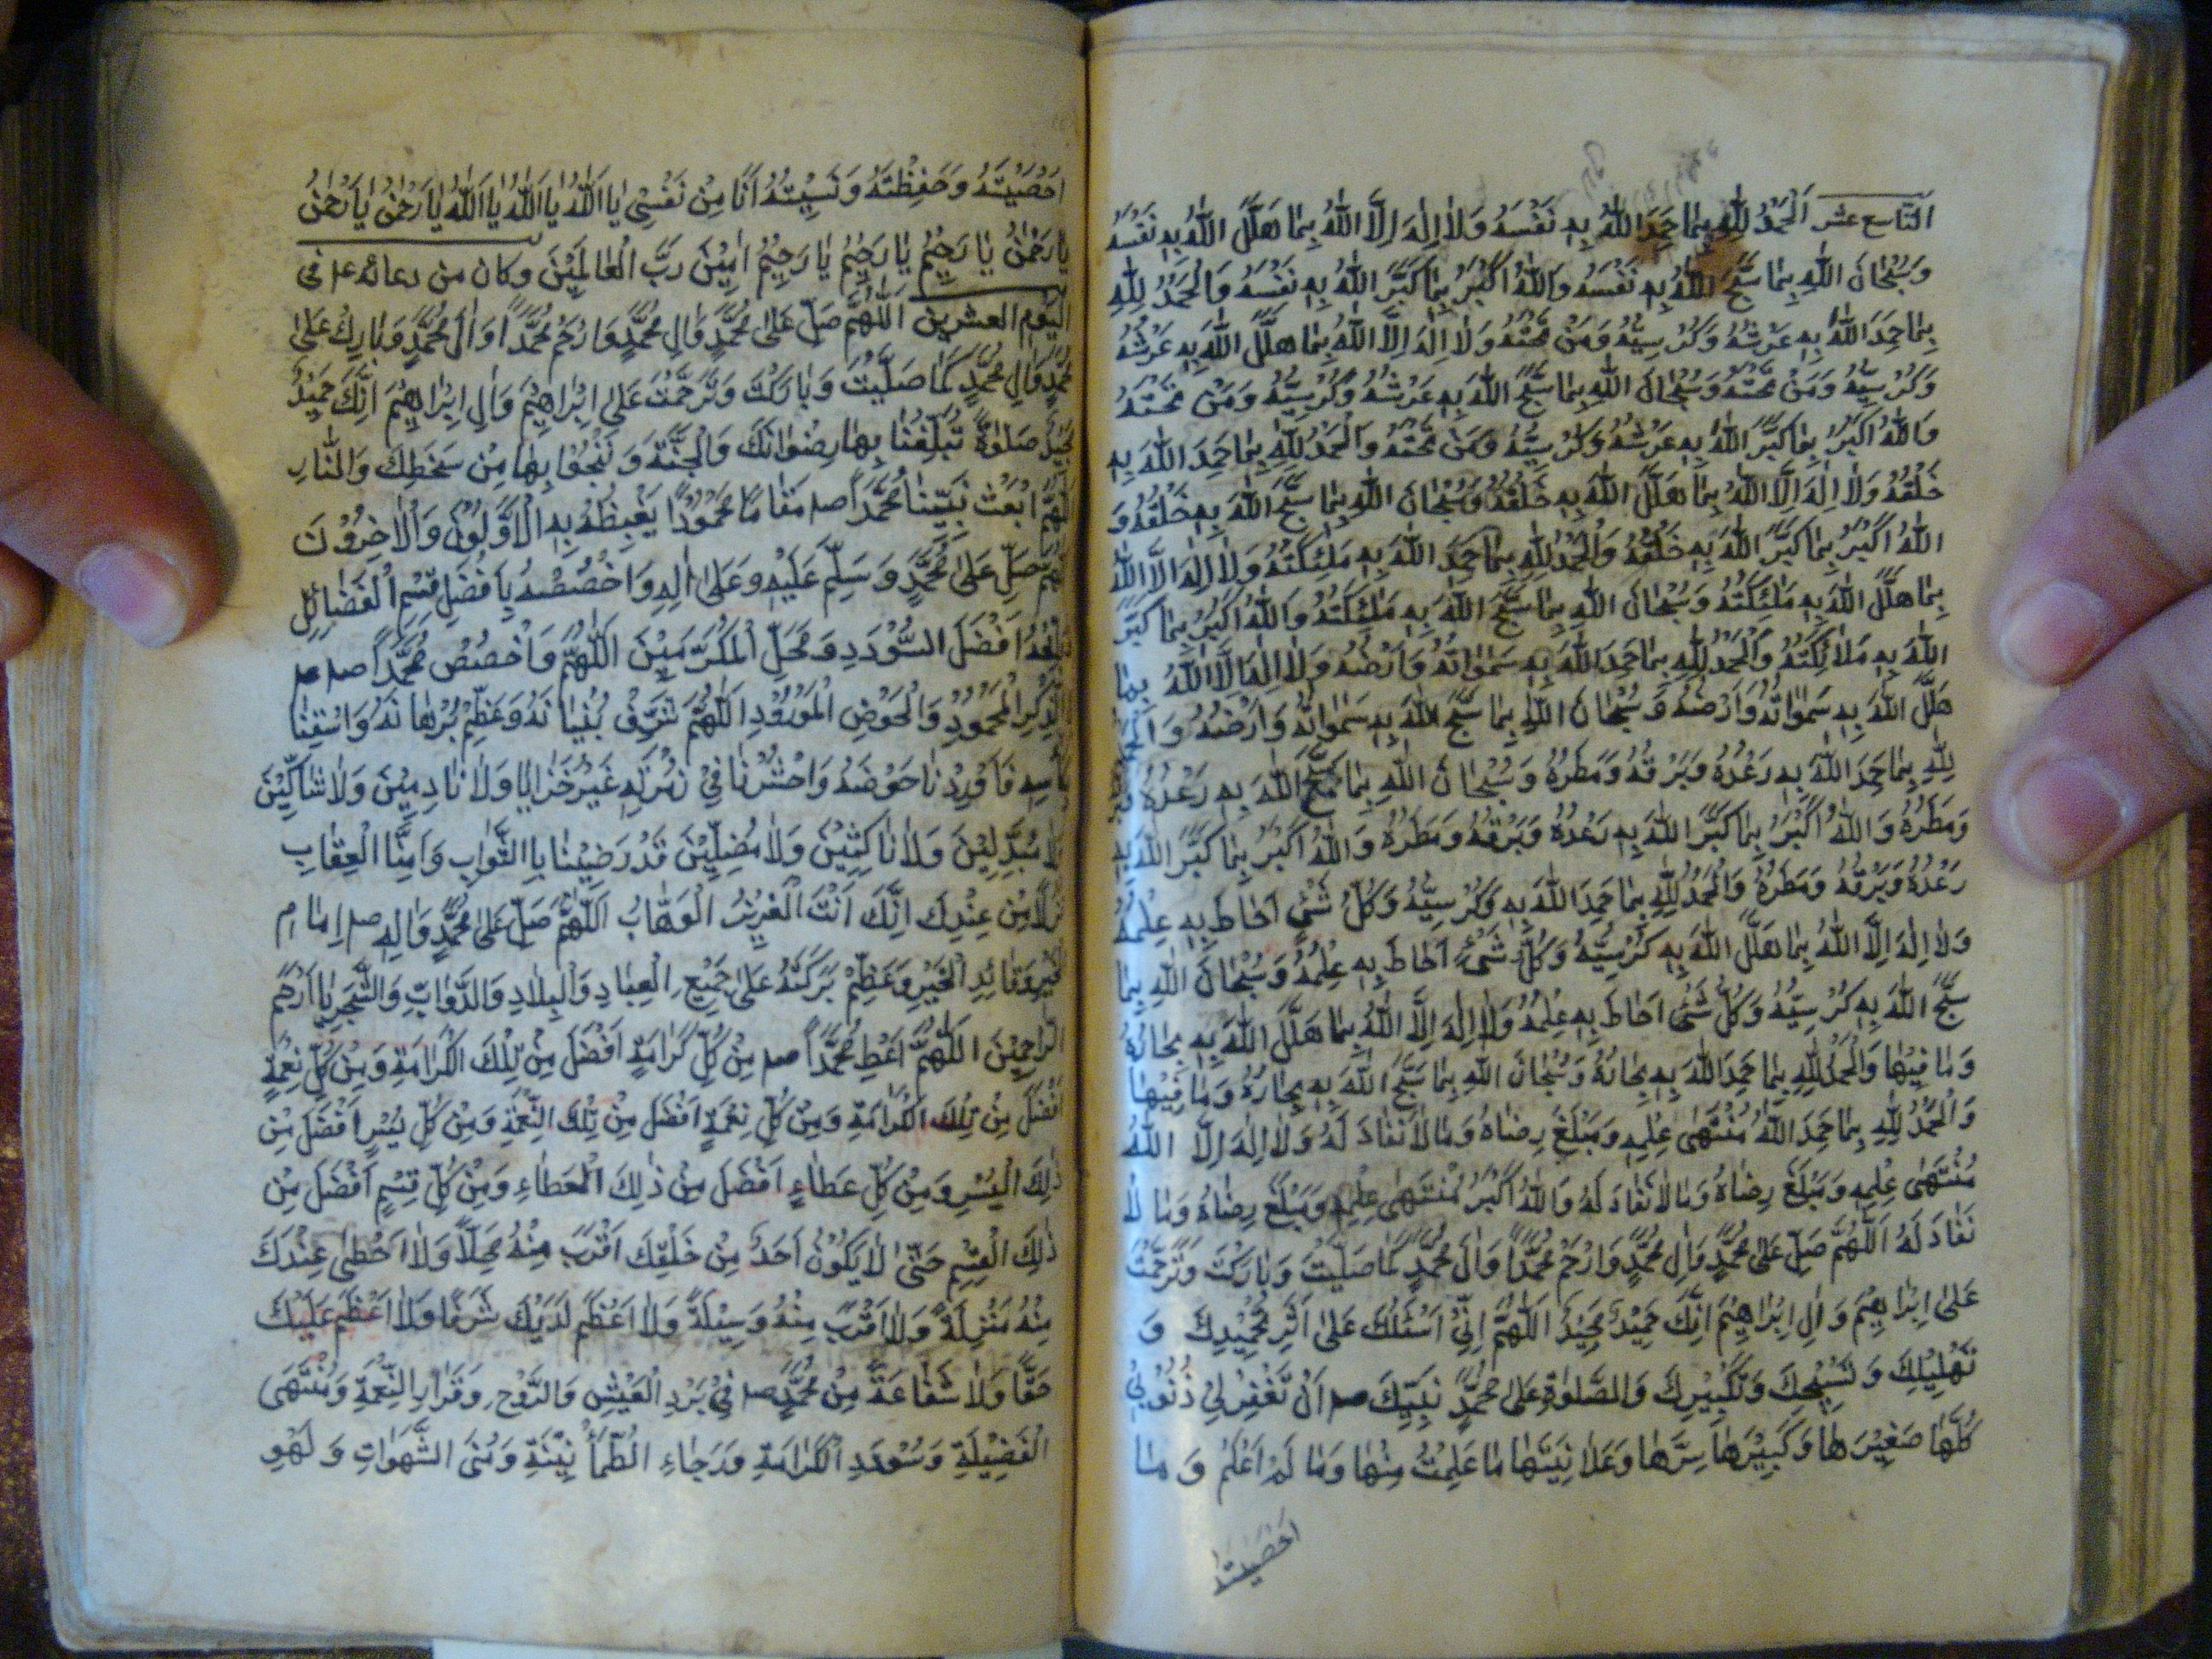 التاسع عشر اَلْحَمْدُ لِلّٰهِ بِمَا حَمِدَ اللّٰهُ بِهِ نَفْسَهُ وَلَا اِلٰهَ اِلَّا اللّٰهُ بِمَا هَلَّلَ اللّٰهُ بِهِ نَفْسَهُ
وَسُبْحَانَ اللّٰهِ بِمَا سَبَّحَ اللّٰهُ بِهِ نَفْسَهُ وَاللّٰهُ اَكْبَرُ بِمَا كَبَّرَ اللّٰهُ بِهِ نَفْسَهُ وَالْحَمْدُ لِلّٰهِ
بِمَا حَمِدَ اللّٰهَ بِهِ عَرْشُهُ وَكُرْسِيُّهُ وَمَنْ تَحْتَهُ وَلَا اِلٰهَ اِلَّا اللّٰهُ بِمَا هَلَّلَ اللّٰهَ بِهِ عَرْشُهُ
وَكُرْسِيُّهُ وَمَنْ تَحْتَهُ وَسُبْحَانَ اللّٰهِ بِمَا سَبَّحَ اللّٰهَ بِهِ عَرْشُهُ وَكُرْسِيُّهُ وَمَنْ تَحْتَهُ
وَاللّٰهُ اَكْبَرُ بِمَا كَبَّرَ اللّٰهَ بِهِ عَرْشُهُ وَكُرْسِيُّهُ وَمَنْ تَحْتَهُ وَالْحَمْدُ لِلّٰهِ بِمَا حَمِدَ اللّٰهَ بِهِ
خَلْقُهُ وَلَا اِلٰهَ اِلَّا اللّٰهُ بِمَا هَلَّلَ اللّٰهَ بِهِ خَلْقُهُ وَسُبْحَانَ اللّٰهِ بِمَا سَبَّحَ اللّٰهَ بِهِ خَلْقُهُ وَ
اللّٰهُ اَكْبَرُ بِمَا كَبَّرَ اللّٰهَ بِهِ خَلْقُهُ وَالْحَمْدُ لِلّٰهِ بِمَا حَمِدَ اللّٰهَ بِهِ مَلٰئِكَتُهُ وَلَا اِلٰهَ اِلَّا اللّٰهُ
بِمَا هَلَّلَ اللّٰهَ بِهِ مَلٰئِكَتُهُ وَسُبْحَانَ اللّٰهِ بِمَا سَبَّحَ اللّٰهَ بِهِ مَلٰئِكَتُهُ وَاللّٰهُ اَكْبَرُ بِمَا كَبَّرَ
اللّٰهَ بِهِ مَلَائِكَتُهُ وَالْحَمْدُ لِلّٰهِ بِمَا حَمِدَ اللّٰهَ بِهِ سَمٰوَاتُهُ وَاَرْضُهُ وَلَا اِلٰهَ اِلَّا اللّٰهُ بِمَا
هَلَّلَ اللّٰهَ بِهِ سَمٰوَاتُهُ وَاَرْضُهُ وَسُبْحَانَ اللّٰهِ بِمَا سَبَّحَ اللّٰهَ بِهِ سَمٰوَاتُهُ وَاَرْضُهُ
لِلّٰهِ بِمَا حَمِدَ اللّٰهَ بِهِ رَعْدُهُ وَبَرْقُهُ وَمَطَرُهُ وَسُبْحَانَ اللّٰهِ بِمَا سَبَّحَ اللّٰهَ بِهِ رَعْدُهُ
وَمَطَرُهُ وَاللّٰهُ اَكْبَرُ بِمَا كَبَّرَ اللّٰهَ بِهِ رَعْدُهُ وَبَرْقُهُ وَمَطَرُهُ وَاللّٰهُ اَكْبَرُ بِمَا كَبَّرَ اللّٰهَ بِهِ
رَعْدُهُ وَبَرْقُهُ وَمَطَرُهُ وَالْحَمْدُ لِلّٰهِ بِمَا حَمِدَ اللّٰهَ بِهِ وَكُرْسِيُّهُ وَكُلُّ شَيْءٍ اَحَاطَ بِهِ عِلْمُهُ
وَلَا اِلٰهَ اِلَّا اللّٰهُ بِمَا هَلَّلَ اللّٰهَ بِهِ كُرْسِيُّهُ وَكُلُّ شَيْءٍ اَحَاطَ بِهِ عِلْمُهُ وَسُبْحَانَ اللّٰهِ بِمَا
سَبَّحَ اللّٰهَ بِهِ كُرْسِيُّهُ وَكُلُّ شَيْءٍ اَحَاطَ بِهِ عِلْمُهُ وَلَا اِلٰهَ اِلَّا اللّٰهُ بِمَا هَلَّلَ اللّٰهَ بِهِ بِحَارُهُ
وَمَا فِيْهَا وَالْحَمْدُ لِلّٰهِ بِمَا حَمِدَ اللّٰهَ بِهِ بِحَارُهُ وَسُبْحَانَ اللّٰهِ بِمَا سَبَّحَ اللّٰهَ بِهِ بِحَارُهُ وَمَا فِيْهَا
وَالْحَمْدُ لِلّٰهِ بِمَا حَمِدَ اللّٰهُ مُنْتَهٰى عِلْمِهِ وَمَبْلَغَ رِضَاهُ وَمَا لَا نَفَادَ لَهُ وَلَا اِلٰهَ اِلَّا اللّٰهُ
مُنْتَهٰى عِلْمِهِ وَمَبْلَغَ رِضَاهُ وَمَا لَا نَفَادَ لَهُ وَاللّٰهُ اَكْبَرُ مُنْتَهٰى عِلْمِهِ وَمَبْلَغَ رِضَاهُ وَمَا لَا
نَفَادَ لَهُ اَللّٰهُمَّ صَلِّ عَلٰى مُحَمَّدٍ وَاٰلِ مُحَمَّدٍ وَارْحَمْ مُحَمَّدًا وَاٰلَ مُحَمَّدٍ كَمَا صَلَّيْتَ وَبَارَكْتَ وَتَرَحَّمْتَ
عَلٰى اِبْرَاهِيْمَ وَاٰلِ اِبْرَاهِيْمَ اِنَّكَ حَمِيْدٌ مَجِيْدٌ اَللّٰهُمَّ اِنِّيْ اَسْئَلُكَ عَلٰى اَثَرِ تَحْمِيْدِكَ وَ
تَهْلِيْلِكَ وَتَسْبِيْحِكَ وَتَكْبِيْرِكَ وَالصَّلٰوةِ عَلٰى مُحَمَّدٍ نَبِيِّكَ صلم اَنْ تَغْفِرَ لِيْ ذُنُوْبِيْ
كُلَّهَا صَغِيْرَهَا وَكَبِيْرَهَا سِرَّهَا وَعَلَانِيَتَهَا مَا عَلِمْتُ مِنْهَا وَمَا لَمْ اَعْلَمْ وَمَا
احصيته
اَحْصَيْتَهُ وَحَفِظْتَهُ وَنَسِيْتُهُ اَنَا مِنْ نَفْسِيْ يَا اَللّٰهُ يَا اَللّٰهُ يَا اَللّٰهُ يَا رَحْمٰنُ يَا رَحْمٰنُ
يَا رَحْمٰنُ يَا رَحِيْمُ يَا رَحِيْمُ يَا رَحِيْمُ اٰمِيْنَ رَبَّ الْعَالَمِيْنَ وكان من دعائه ع م في
اليوم العشرين اَللّٰهُمَّ صَلِّ عَلٰى مُحَمَّدٍ وَاٰلِ مُحَمَّدٍ وَارْحَمْ مُحَمَّدًا وَاٰلَ مُحَمَّدٍ وَبَارِكْ عَلٰى
مُحَمَّدٍ وَاٰلِ مُحَمَّدٍ كَمَا صَلَّيْتَ وَبَارَكْتَ وَتَرَحَّمْتَ عَلٰى اِبْرَاهِيْمَ وَاٰلِ اِبْرَاهِيْمَ اِنَّكَ حَمِيْدٌ
مَجِيْدٌ صَلٰوةً تُبَلِّغُنَا بِهَا رِضْوَانَكَ وَالْجَنَّةَ وَنَنْجُوْا بِهَا مِنْ سَخَطِكَ وَالنَّارِ
اللّٰهُمَّ ابْعَثْ نَبِيَّنَا مُحَمَّدًا صلم مَقَامًا مَحْمُوْدًا يَغْبِطُهُ بِهِ الْاَوَّلُوْنَ وَالْاٰخِرُوْنَ
اللّٰهُمَّ صَلِّ عَلٰى مُحَمَّدٍ وَسَلِّمْ عَلَيْهِ وَعَلٰى اٰلِهِ وَاخْصُصْهُ بِاَفْضَلِ قِسْمِ الْفَضَائِلِ
اَفْضَلَ السُّوْدَدِ وَمَحَلَّ الْمُكَرَّمِيْنَ اَللّٰهُمَّ وَاخْصُصْ مُحَمَّدًا صلم
بِالذِّكْرِ الْمَحْمُوْدِ وَالْحَوْضِ الْمَوْرُوْدِ اَللّٰهُمَّ شَرِّفْ بُنْيَانَهُ وَعَظِّمْ بُرْهَانَهُ وَاسْقِنَا
فَاَوْرِدْنَا حَوْضَهُ وَاحْشُرْنَا فِيْ زُمْرَتِهِ غَيْرَ خَزَايَا وَلَا نَادِمِيْنَ وَلَا شَاكِّيْنَ
مُبَدِّلِيْنَ وَلَا نَاكِثِيْنَ وَلَا مُضِلِّيْنَ قَدْ رَضِيْنَا بِالثَّوَابِ وَاَمِنَّا الْعِقَابِ
نُزُلًا مِنْ عِنْدِكَ اِنَّكَ اَنْتَ الْعَزِيْزُ الْوَهَّابُ اَللّٰهُمَّ صَلِّ عَلٰى مُحَمَّدٍ وَاٰلِهِ صلم اِمَامِ
الْخَيْرِ وَقَائِدِ الْخَيْرِ وَعَظِّمْ بَرَكَتَهُ عَلٰى جَمِيْعِ الْعِبَادِ وَالْبِلَادِ وَالدَّوَابِّ وَالشَّجَرِ يَا اَرْحَمَ
الرَّاحِمِيْنَ اَللّٰهُمَّ اَعْطِ مُحَمَّدًا صلم مِنْ كُلِّ كَرَامَةٍ اَفْضَلَ مِنْ تِلْكَ الْكَرَامَةِ وَمِنْ كُلِّ نِعْمَةٍ
اَفْضَلَ مِنْ تِلْكَ الْكَرَامَةِ وَمِنْ كُلِّ نِعْمَةٍ اَفْضَلَ مِنْ تِلْكَ النِّعْمَةِ وَمِنْ كُلِّ يُسْرٍ اَفْضَلَ مِنْ
ذٰلِكَ الْيُسْرِ وَمِنْ كُلِّ عَطَاءٍ اَفْضَلَ مِنْ ذٰلِكَ الْعَطَاءِ وَمِنْ كُلِّ قِسْمٍ اَفْضَلَ مِنْ
ذٰلِكَ الْقِسْمِ حَتّٰى لَا يَكُوْنَ اَحَدٌ مِنْ خَلْقِكَ اَقْرَبَ مِنْهُ مَحَلًّا وَلَا اَحْظٰى عِنْدَكَ
مِنْهُ مَنْزِلَةً وَلَا اَقْرَبَ مِنْهُ وَسِيْلَةً وَلَا اَعْظَمَ لَدَيْكَ شَرَفًا وَلَا اَعْظَمَ عَلَيْكَ
حَقًّا وَلَا شَفَاعَةً مِنْ مُحَمَّدٍ صلم فِيْ بَرْدِ الْعَيْشِ وَالرَّوْحِ وَقَرَارِ النِّعْمَةِ وَمُنْتَهٰى
الْفَضِيْلَةِ وَسُوْدَدِ الْكَرَامَةِ وَرَجَاءِ الطُّمَأْنِيْنَةِ وَمُنَى الشَّهَوَاتِ وَلَهْوِ